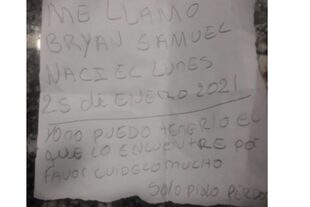 ME LLAMO
BRYAN SAMUEL
NACI EL LUNES
25 de ENERO 2021
YONO PUEDO TENERLO EL
QUE LO ENCUENTRE POR
FAVOR CUIDELO MUCHO
SOLO PIDO PERDO